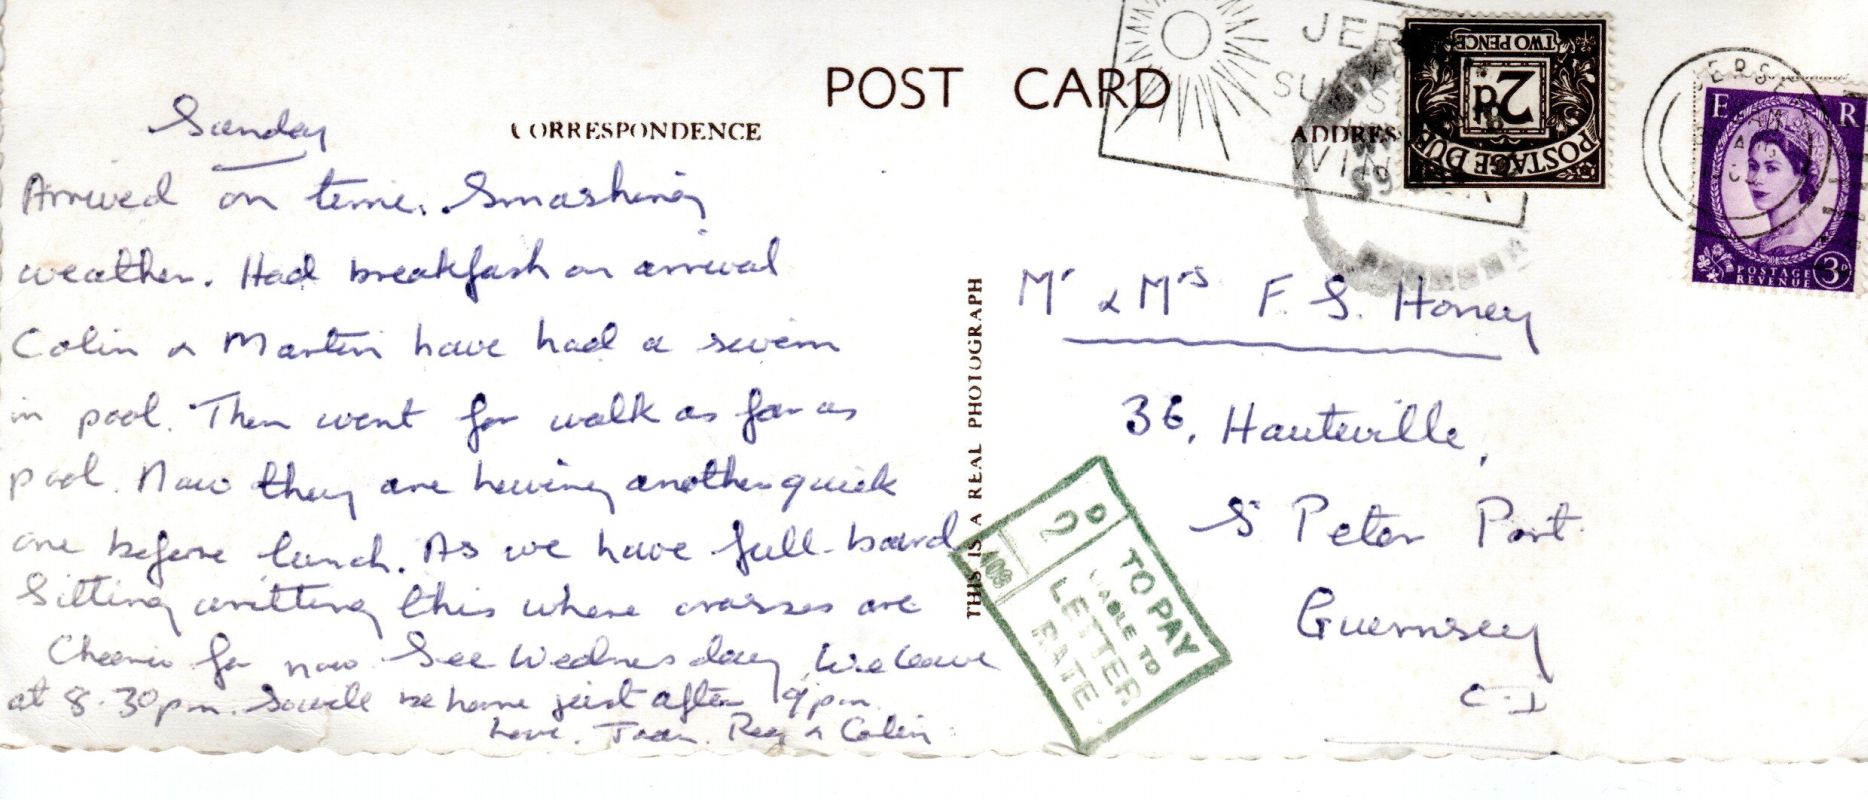 POST CARD
CORRESPONDENCE
ADDRES
Sunday
Arrived on time. Smashing
weather. Had breakfast on arrival
Colin & Martin have had a swim
in pool. Then went for walk as far as
pool. Now they are having another quick
one before lunch. As we have full-board
Sitting writting this where crosses are
Cheerio for now See Wednesday, We leave
at 8.30pm. So will be home just after 9pm.
Love. Joan. Reg & Colin
THIS IS A REAL PHOTOGRAPH
Mr & Mrs F. S. Honey
36, Hauteville,
St Peter Port
Guernsey
C.I
TO PAY
LIABLE TO
LETTER
RATE
2D
409
JER
SU
WIN
POSTAGE DUE
2d
TWO PENCE
JERSEY
E R
POSTAGE
REVENUE
3D